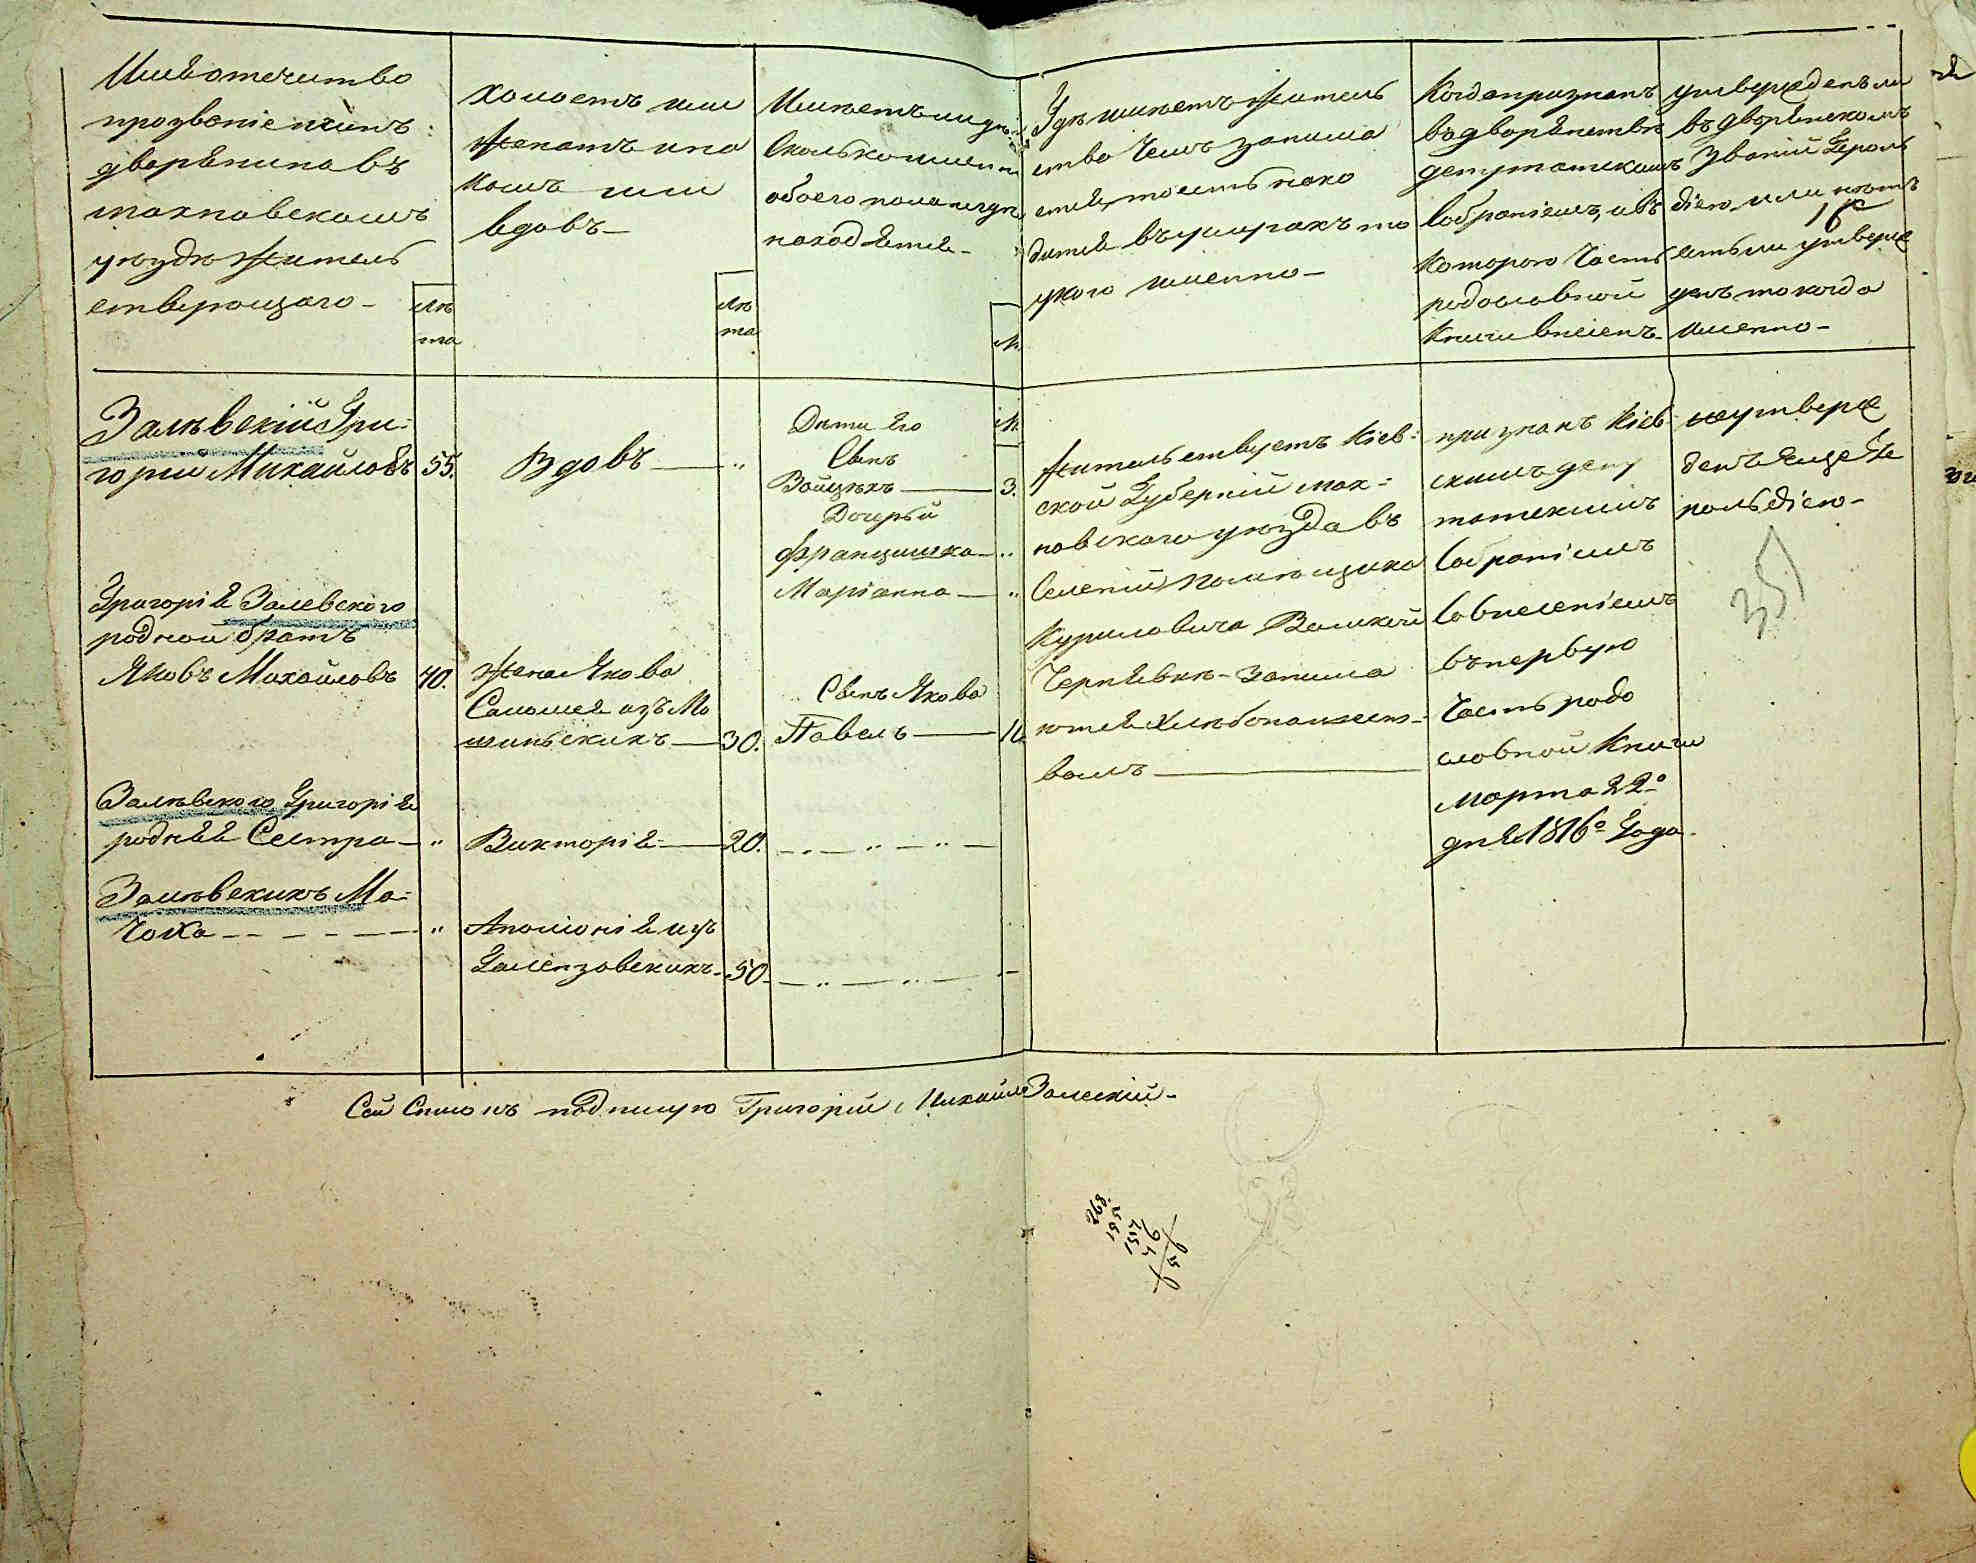 Имя отечество
прозвеніе и чинъ
дворянина въ
махновскомъ
уѣздѣ жытель
ствующаго –
лѣ
та
холостъ или
женатъ и на
комъ или
вдовъ –
лѣ
та
Имѣетъ ли дѣ-
обоего пола и гдѣ
находятся –
М.
Гдѣ имѣетъ жытель
ство Чемъ занима
уkого именно –
Когда признанъ
въ дворянствѣ
депутатскимъ
Собраніемъ, и въ
которою Часть
родословной
Книги внесенъ –
утвержденъ ли
въ дворянскомъ
званіи Героль
діею, или нѣтъ
естьли утверж
денъ то когда
именно –
16
Залѣвскій Гри-
горій Михайловъ
55.
Вдовъ — „
Дѣти Его
М.
Сынъ
Войцѣхъ — 3.
Дочерьи
Францишка — „
Маріанна — „
Жительствуетъ Кіев-
ской Губерніи мах-
новского уѣзда въ
Селеніи, помѣщика
Куриловича Великой
Чернявкѣ – занима
ется Хлѣбопашест-
вомъ —
признанъ Кіев
скимъ депу
татскимъ
Собраніемъ
Совнесеніемъ
въ первую
Часть родо
словной Книги
Марта 22º
дня 1816º Года.
неутверж
денъ Еще Ге
рольдіею –
Григорія Залевского
родной братъ
Яковъ Михайловъ
40.
Жена Якова
Саломея изъ Мо
шинскихъ — 30.
Сынъ Якова
Павелъ —
Залѣвского Григорія
родная Сестра — „
Викторія — 20.
Залѣвскихъ Ма-
чоха — „
Аполонія изъ
50.
Сей Списокъ подпишую Григорій Михайл Залескій –
268.
195
157